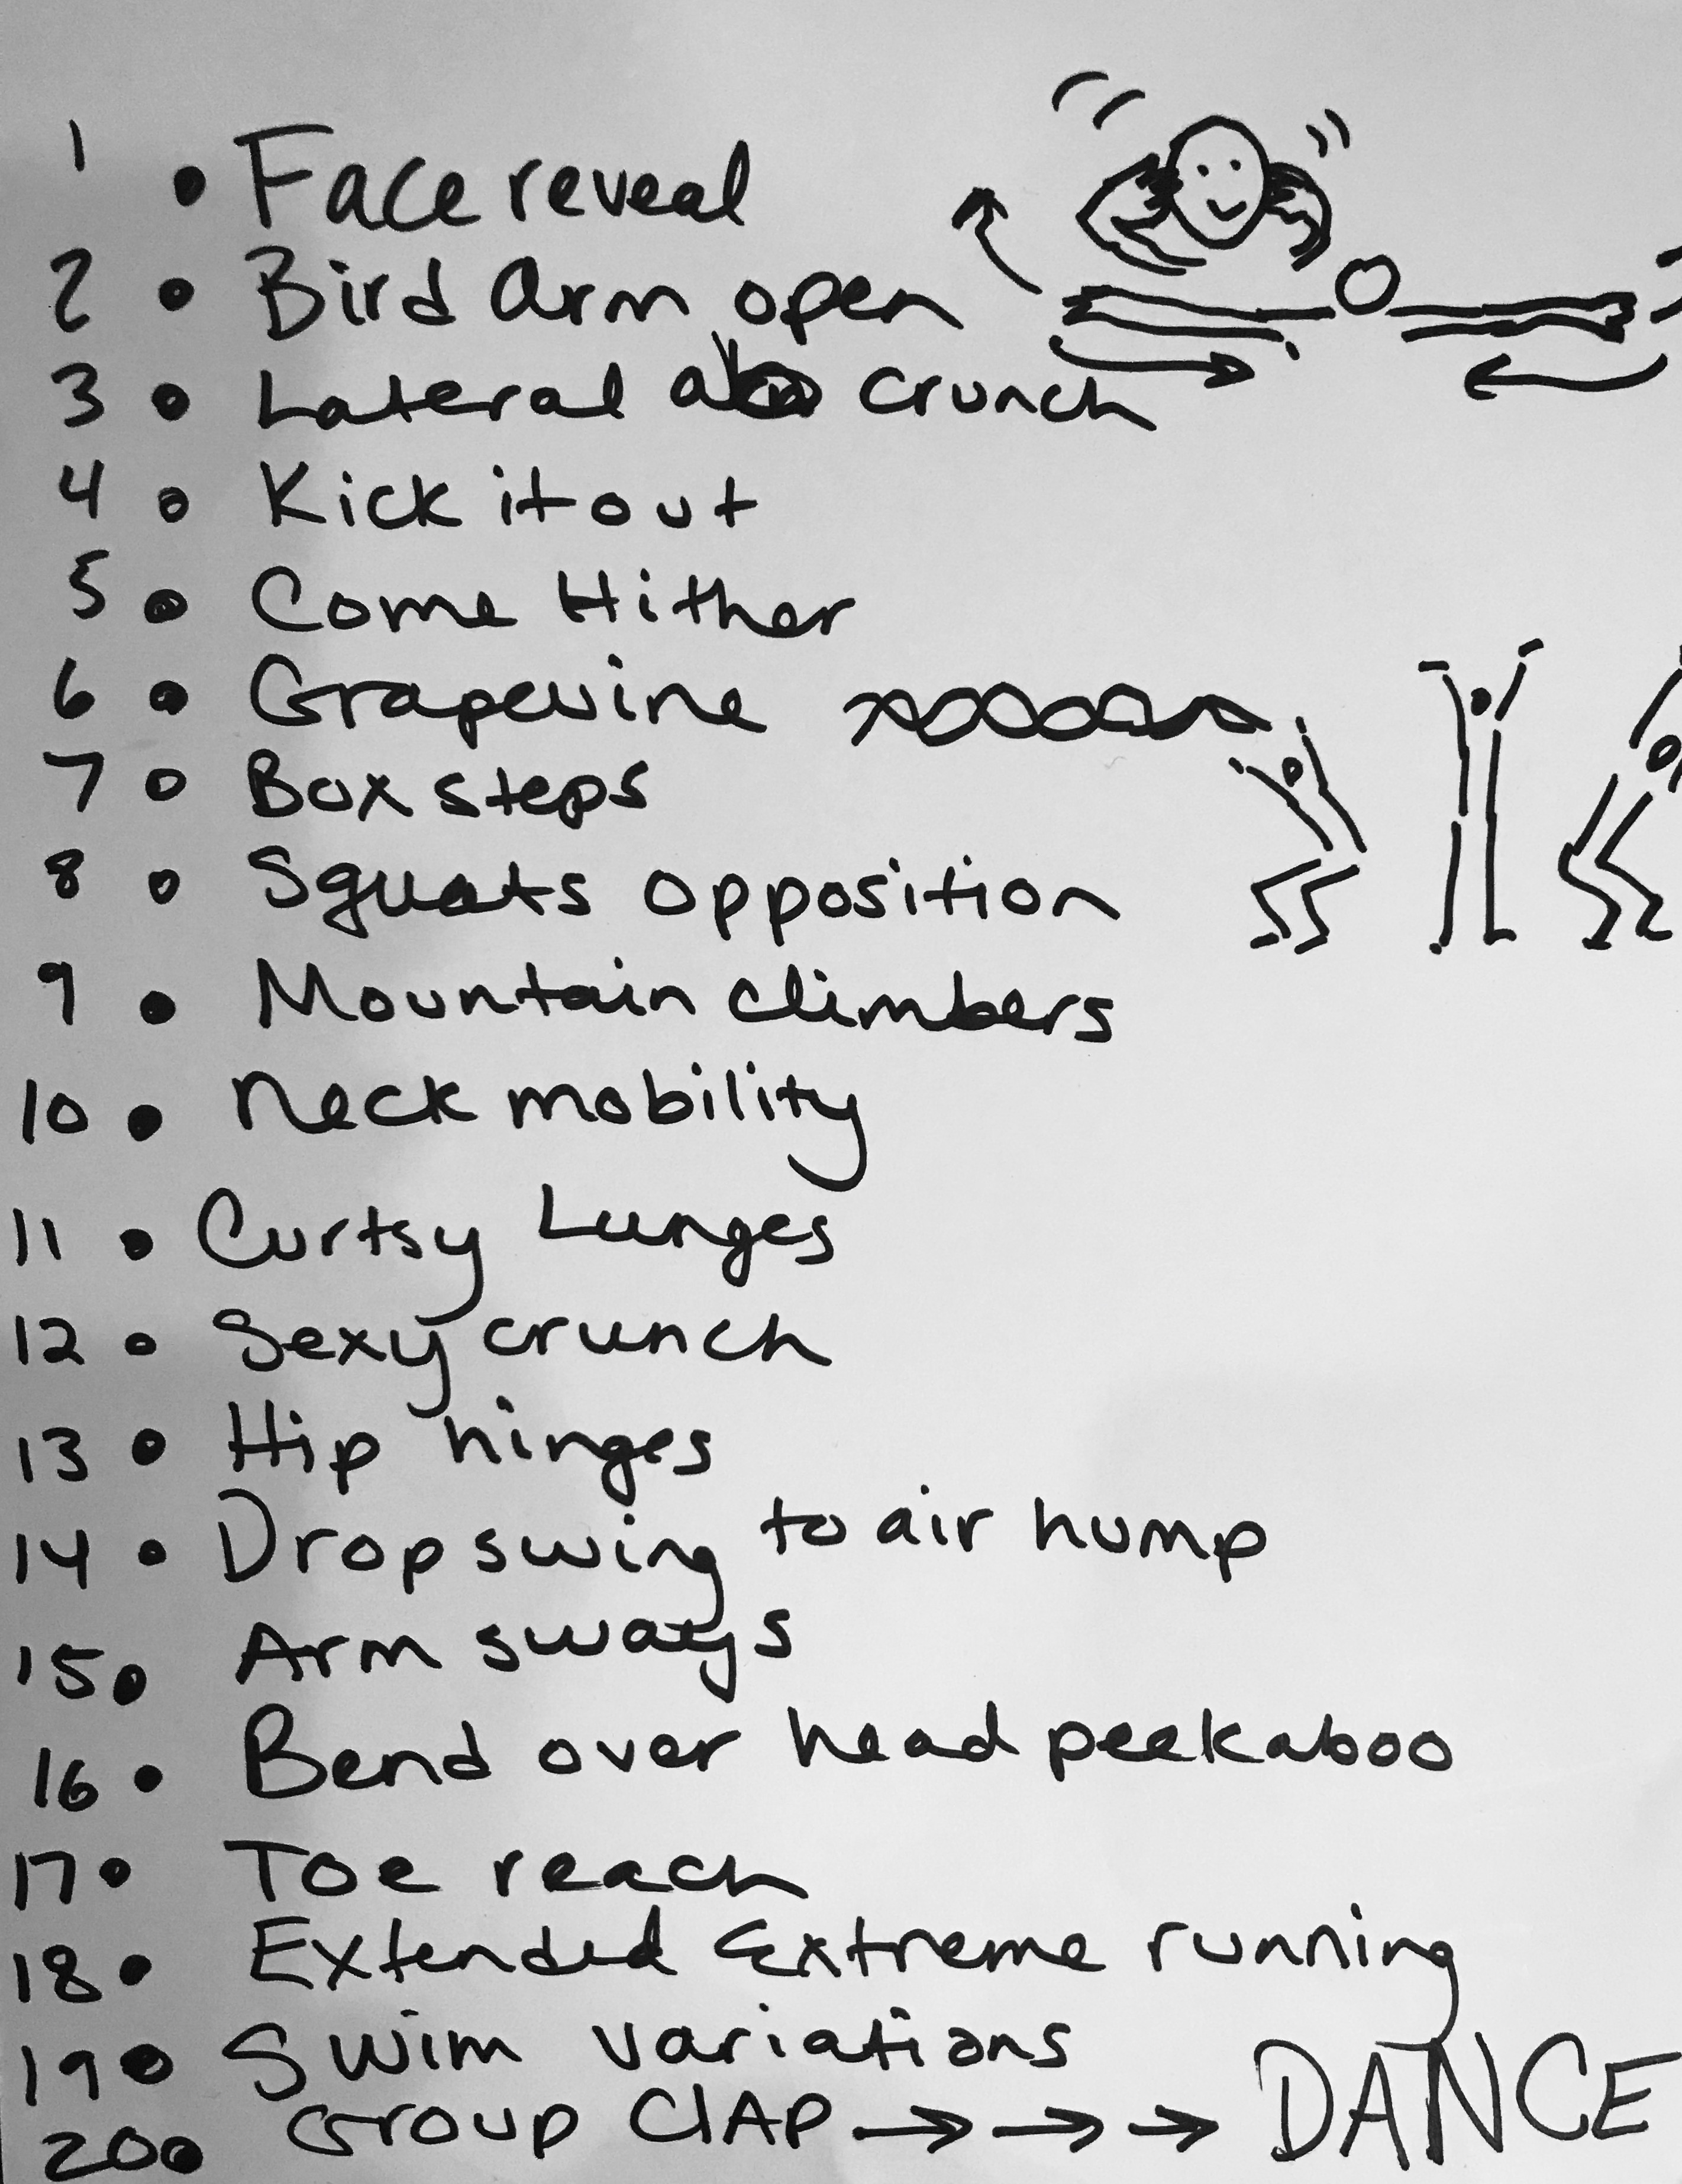 1 • Face reveal
2 • Bird arm open
3 • Lateral ab crunch
4 • Kick it out
5 • Come Hither
6 • Grapevine
7 • Box steps
8 • Squats opposition
9 • Mountain climbers
10 • Neck mobility
11 • Curtsy Lunges
12 • Sexy crunch
13 • Hip hinges
14 • Drop swing to air hump
15 • Arm sways
16 • Bend over head peekaboo
17 • Toe reach
18 • Extended Extreme running
19 • Swim variations
20 • Group ClAP → → → DANCE